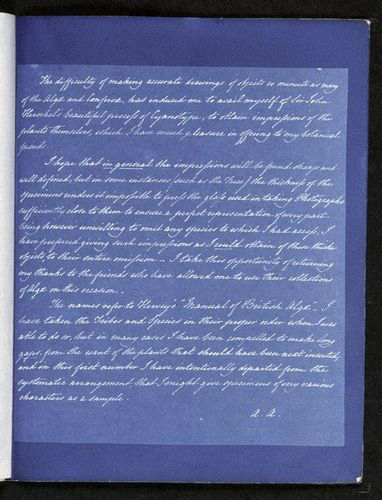 The difficulty of making accurate drawings of objects so minute as many
of the Algæ and Confervæ, has induced me to avail myself of Sir John
Herschel's beautiful process of Cyanotype, to obtain impressions of the
plants themselves, which I have much pleasure in offering to my botanical
friends.
I hope that in general the impressions will be found sharp and
well defined, but in some instances (such as the Fuci) the thickness of the
specimen renders it impossible to press the glass used in taking Photographs
sufficiently close to them to ensure a perfect representation of every part.
being however unwilling to omit any species to which I had access, I
have preferred giving such impressions as I could obtain of these thick
objects to their entire omission – I take this opportunity of returning
my thanks to the friends who have allowed me to use their collections
of Algæ on this occasion –
The names refer to Harvey's "Manual of British Algæ" – I
have taken the Tribes and Species in their proper order when I was
able to do so, but in many cases I have been compelled to make long
gaps, from the want of the plants that should have been next inserted,
and in this first number I have intentionally departed from the
systematic arrangement, that I might give specimens of very various
characters as a sample.
A. A.